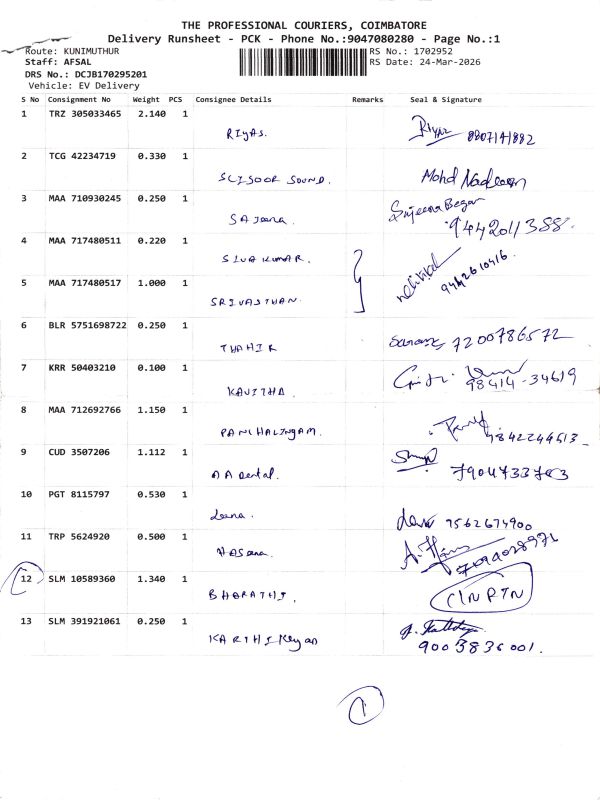 THE PROFESSIONAL COURIERS, COIMBATORE
Delivery Runsheet - PCK - Phone No.:9047080280 - Page No.:1
Route: KUNIMUTHUR
RS No.: 1702952
Staff: AFSAL
RS Date: 24-Mar-2026
DRS No.: DCJB170295201
Vehicle: EV Delivery
S No Consignment No Weight PCS Consignee Details Remarks Seal & Signature
1 TRZ 305033465 2.140 1
RIYAS. Riyaz 8807141882
2 TCG 42234719 0.330 1
SCISOOR SOUND. Mohd Nadeem
3 MAA 710930245 0.250 1
SAJeena. Sajeena Begam
9442011388.
4 MAA 717480511 0.220 1
SIVA KUMAR.
5 MAA 717480517 1.000 1
SRIVASTHAN. 9442610416.
6 BLR 5751698722 0.250 1
THAHIR 7200786572
7 KRR 50403210 0.100 1
KAVITHA 98414-34619
8 MAA 712692766 1.150 1
PANCHALINGAM. 9842244513
9 CUD 3507206 1.112 1
AA Dental. 7904733703
10 PGT 8115797 0.530 1
Leena. 9562674900
11 TRP 5624920 0.500 1
HASeena.
12 SLM 10589360 1.340 1
BHARATHI. CIN RTN
13 SLM 391921061 0.250 1
KARTHIKeyan
9003836001.
1